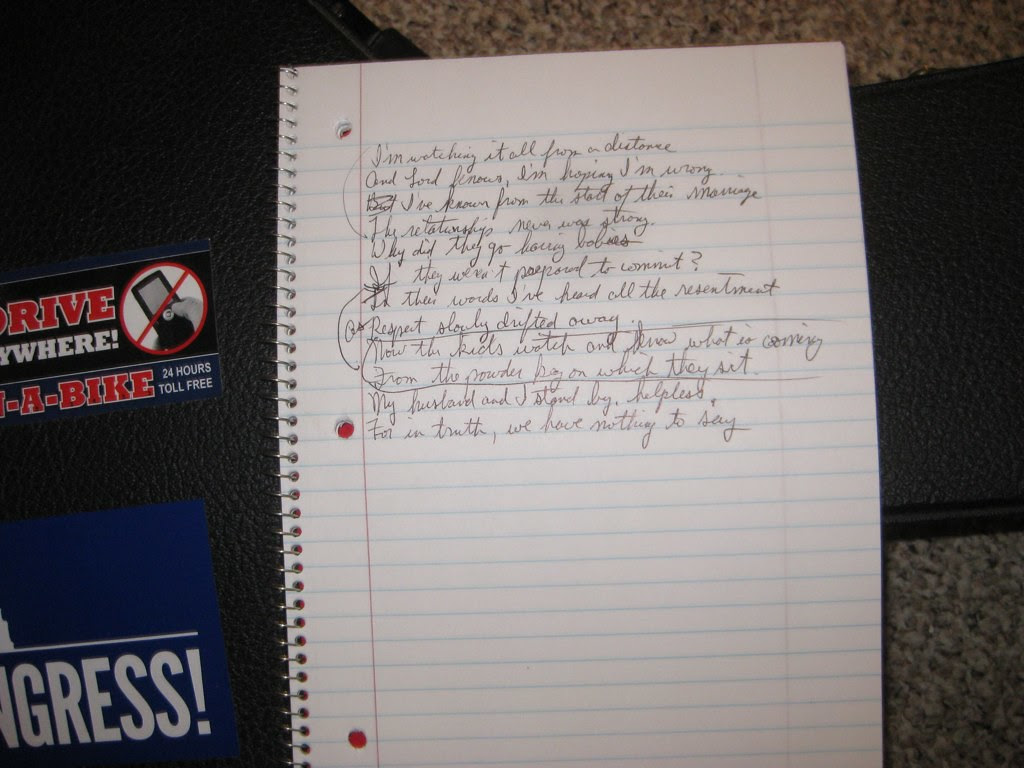 I'm watching it all from a distance
And Lord knows, I'm hoping I'm wrong.
But I've known from the start of their marriage
The relationship never was strong.
Why did they go having babies
If they weren't prepared to commit?
In their words I've heard all the resentment
Respect slowly drifted away.
Now the kids watch and know what is coming
From the powder keg on which they sit.
My husband and I stand by, helpless,
For in truth, we have nothing to say
DRIVE
YWHERE!
N-A-BIKE
24 HOURS
TOLL FREE
NGRESS!